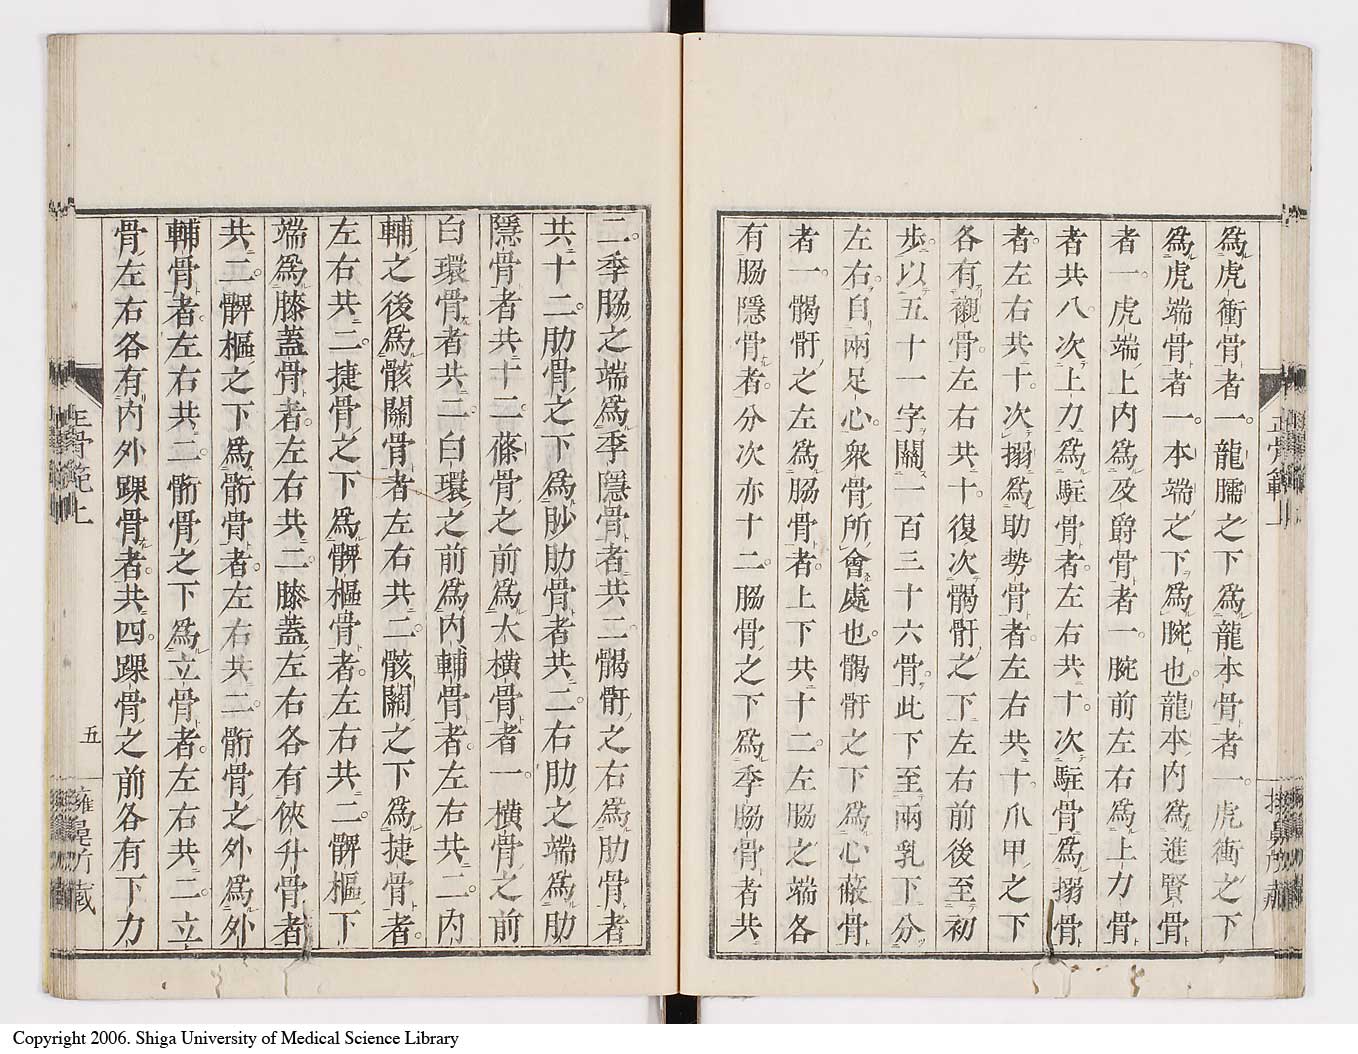 爲虎衝骨者一。龍臑之下爲龍本骨者一。虎衝之下
爲虎端骨者一。本端之下爲腕也。龍本内爲進賢骨
者一。虎端上内爲及爵骨者一。腕前左右爲上力骨
者共八。次上力爲駐骨者。左右共十。次駐骨爲搦骨
者。左右共十。次搦爲助勢骨者。左右共十。爪甲之下
各有襯骨。左右共十。復次髑骬之下。左右前後至初
步。以五十一字關一百三十六骨。此下至兩乳下分
左右。自兩足心。衆骨所會處也。髑骬之下爲心蔽骨
者一。髑骬之左爲脇骨者。上下共十二。左脇之端各
有脇隱骨者。分次亦十二。脇骨之下爲季脇骨者共
二。季脇之端爲季隱骨者共二。髑骬之右爲肋骨者
共十二。肋骨之下爲䏚肋骨者共二。右肋之端爲肋
隱骨者共十二。蓧骨之前爲大橫骨者一。橫骨之前
白環骨者共二。白環之前爲内輔骨者。左右共二。内
輔之後爲骸關骨者左右共二。骸關之下爲捷骨者。
左右共二。捷骨之下爲髀樞骨者。左右共二。髀樞下
端爲膝蓋骨者。左右共二。膝蓋左右各有俠升骨者
共二。髀樞之下爲䯒骨者。左右共二。䯒骨之外爲外
輔骨者。左右共二。䯒骨之下爲立骨者。左右共二。立
骨左右各有内外踝骨者。共四。踝骨之前各有下力
正骨範上
五
Copyright 2006. Shiga University of Medical Science Library